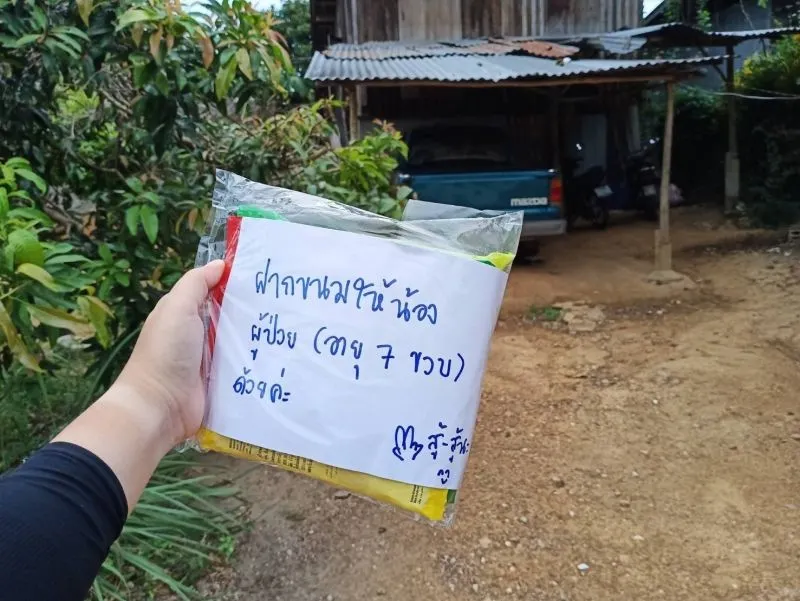 ฝากขนมให้น้อง
ผู้ป่วย (อายุ 7 ขวบ)
ด้วยค่ะ
สู้-สู้นะ
mazda